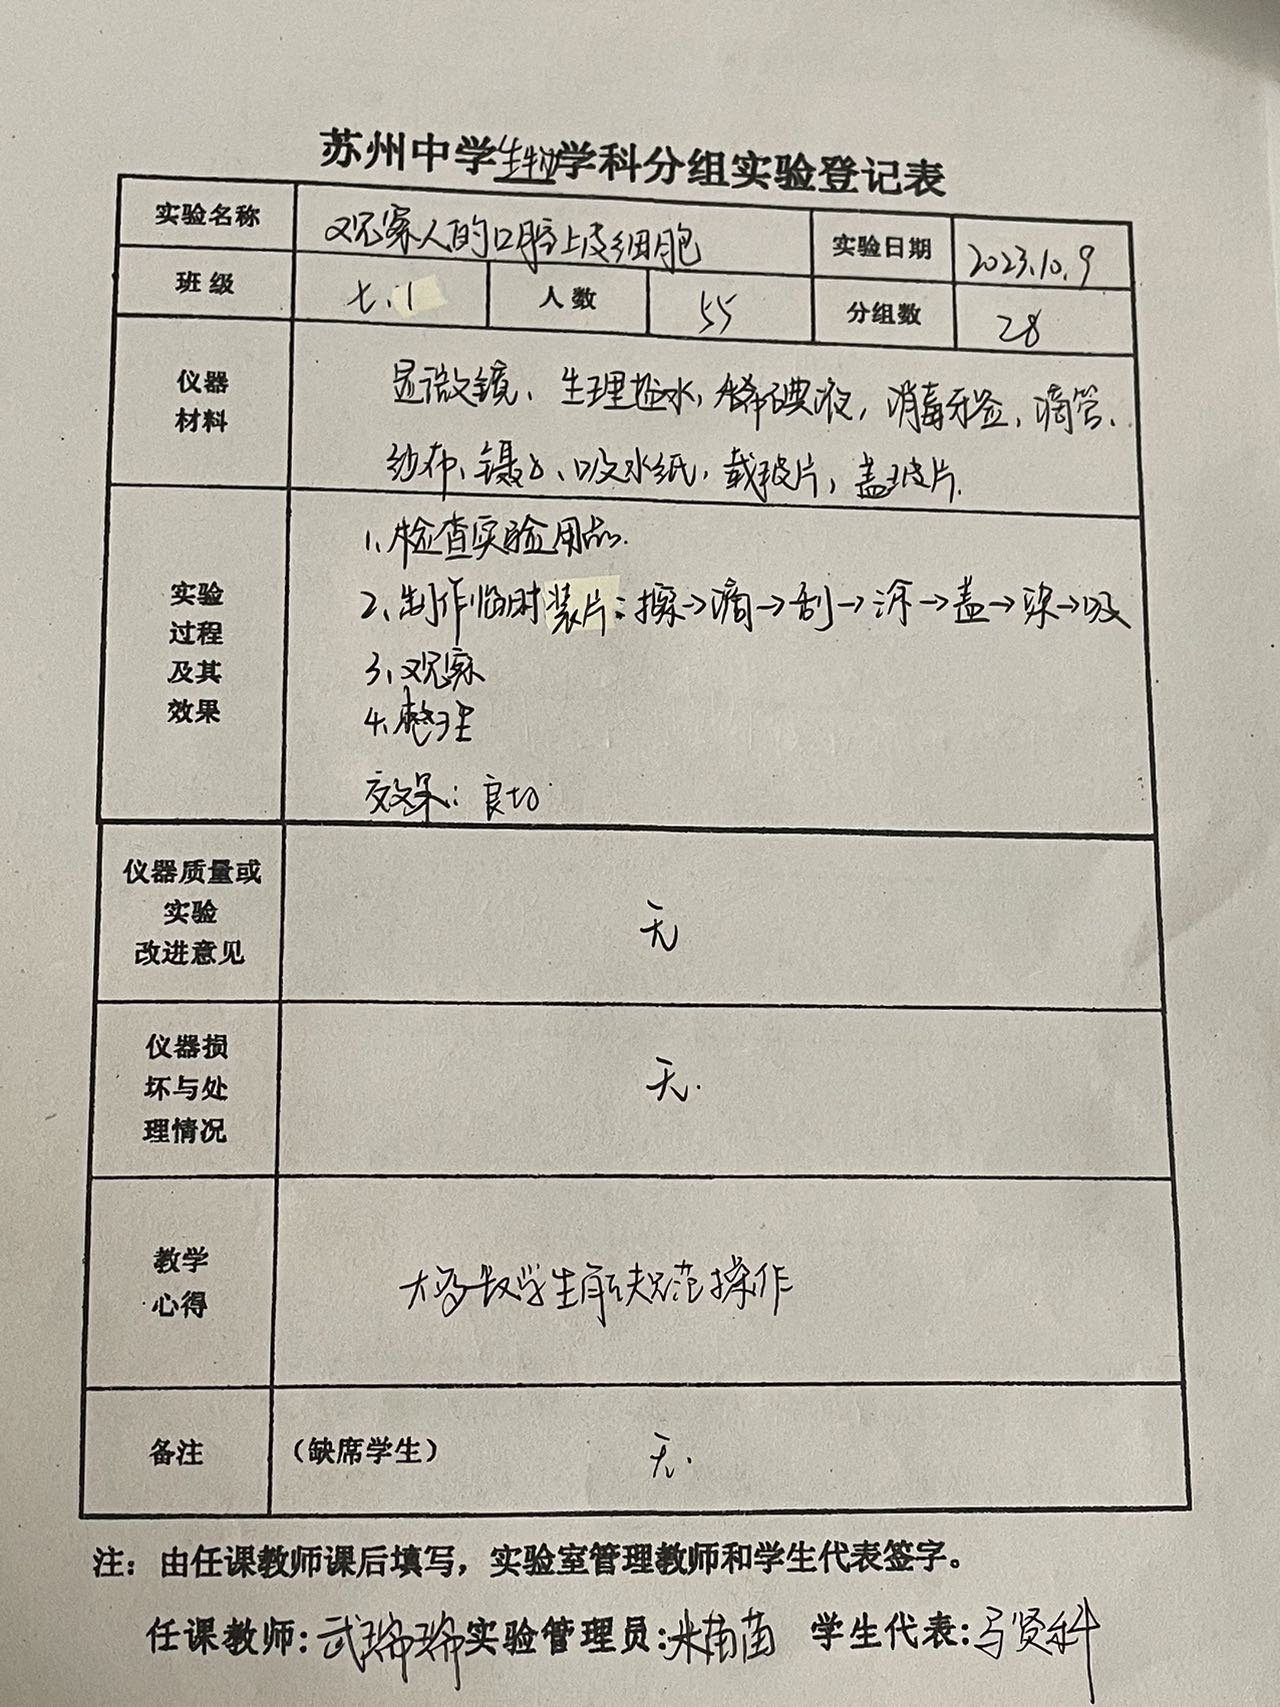 苏州中学生物学科分组实验登记表
实验名称 观察人的口腔上皮细胞 实验日期 2023.10.9
班级 七.1 人数 55 分组数 28
仪器
材料
显微镜、生理盐水,稀碘液,消毒牙签,滴管、
纱布、镊子、吸水纸,载玻片,盖玻片.
实验
过程
及其
效果
1、检查实验用品.
2、制作临时装片:擦→滴→刮→涂→盖→染→吸
3、观察
4、整理
效果:良好.
仪器质量或
实验
改进意见
无
仪器损
坏与处
理情况
无.
教学
心得
大多数学生能规范操作
备注 (缺席学生) 无.
注:由任课教师课后填写,实验室管理教师和学生代表签字。
任课教师:武瑞瑞 实验管理员:苗苗 学生代表:马贤科